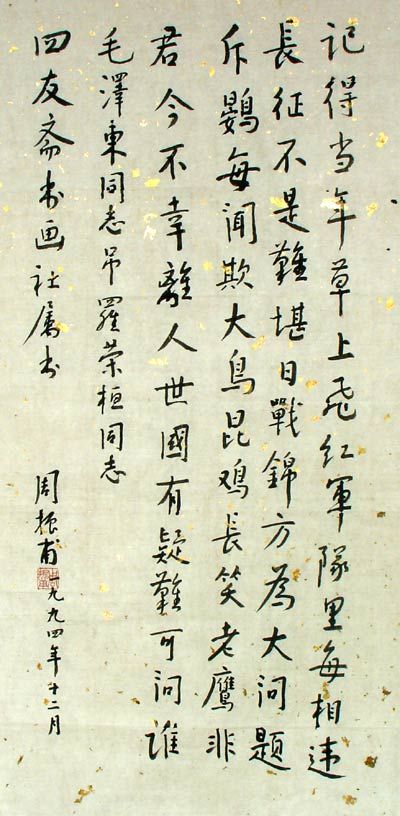 记得当年草上飛红軍隊里每相违
長征不是難堪日戰錦方為大问题
斥鷃每闻欺大鳥昆鸡長笑老鷹非
君今不幸離人世國有疑難可问谁
毛澤東同志吊羅荣桓同志
四友斋书画社属书
周振甫
一九九四年十二月